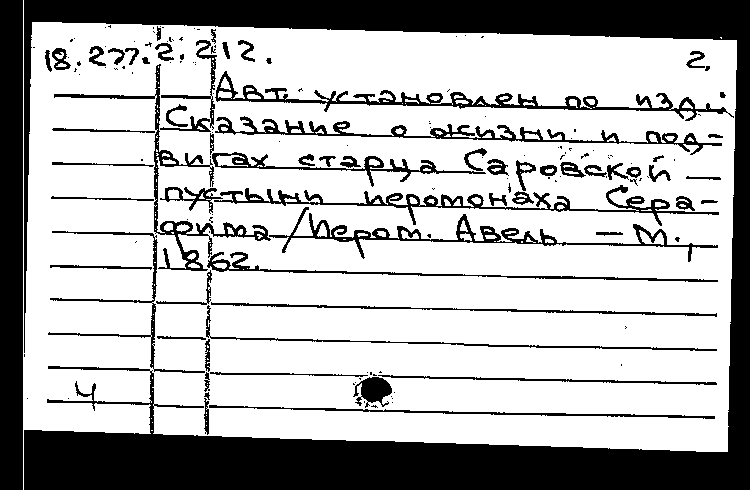 18.277.2.212. 2.
Авт. установлен по изд.:
Сказание о жизни и под-
вигах старца Саровской
пустыни иеромонаха Сера-
фима / Иером. Авель. – М.,
1862.
4